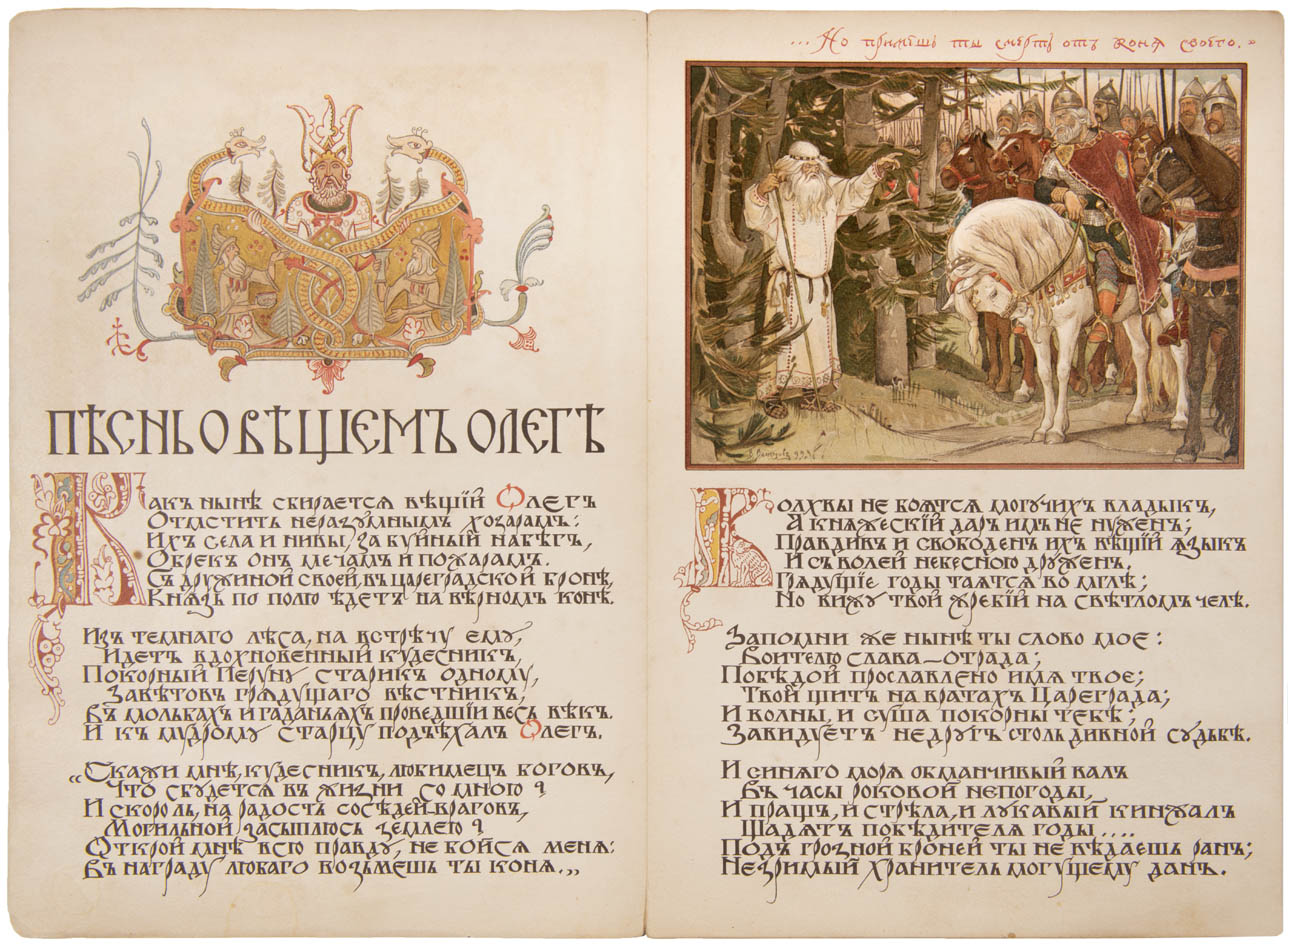 ПѢСНЬ О ВѢЩЕМЪ ОЛЕГѢ
Какъ нынѣ сбирается вѣщій Олегъ
Отмстить неразумнымъ хозарамъ:
Ихъ села и нивы, за буйный набѣгъ,
Обрекъ онъ мечамъ и пожарамъ.
Съ дружиной своей, въ цареградской бронѣ,
Князь по полю ѣдетъ на вѣрномъ конѣ.
Изъ темнаго лѣса, на встрѣчу ему,
Идетъ вдохновенный кудесникъ,
Покорный Перуну старикъ одному,
Завѣтовъ грядущаго вѣстникъ,
Въ мольбахъ и гаданьяхъ проведшій весь вѣкъ.
И къ мудрому старцу подъѣхалъ Олегъ.
„Скажи мнѣ, кудесникъ, любимецъ боговъ,
Что сбудется въ жизни со мною?
И скоро ль, на радость сосѣдей-враговъ,
Могильной засыплюсь землею?
Открой мнѣ всю правду, не бойся меня:
Въ награду любаго возьмешь ты коня.„
...Но примешь ты смерть отъ коня своего.»
В. Васнецовъ 99
Волхвы не боятся могучихъ владыкъ,
А княжескій даръ имъ не нуженъ;
Правдивъ и свободенъ ихъ вѣщій языкъ
И съ волей небесною дружен.
Грядущіе годы таятся во мглѣ;
Но вижу твой жребій на свѣтломъ челѣ.
Запомни же нынѣ ты слово мое:
Воителю слава—отрада;
Побѣдой прославлено имя твое;
Твой щитъ на вратахъ Цареграда;
И волны, и суша покорны тебѣ;
Завидуетъ недругъ столь дивной судьбѣ.
И синяго моря обманчивый валъ
Въ часы роковой непогоды,
И пращъ, и стрѣла, и лукавый кинжалъ
Щадятъ побѣдителя годы....
Подъ грозной броней ты не вѣдаешь ранъ;
Незримый хранитель могущему данъ.